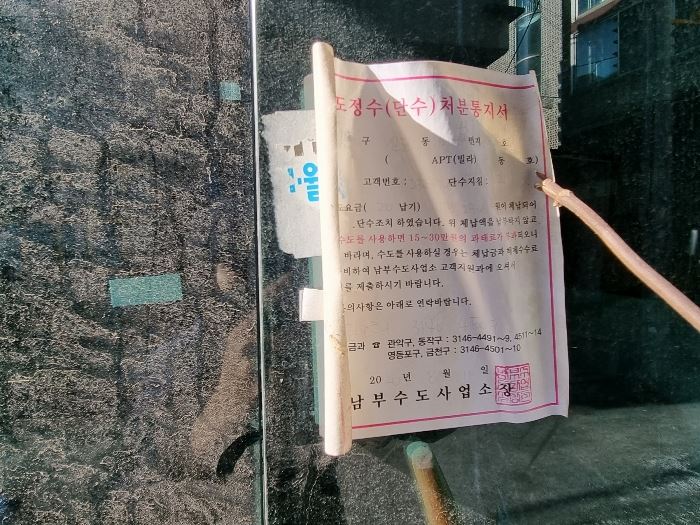 도정수(단수)처분통지서
구 동 번지 호
( APT(빌라) 동 호)
고객번호 : 단수지침 :
도요금( 납기) 원이 체납되어
단수조치 하였습니다. 위 체납액을 납부하지 않고
수도를 사용하면 15~30만원의 과태료가 부과되오니
바라며, 수도를 사용하실 경우는 체납금과 해제수수료
비하여 남부수도사업소 고객지원과에 오셔서
를 제출하시기 바랍니다.
의사항은 아래로 연락바랍니다.
금과 ☎ 관악구, 동작구 : 3146-4491~9, 4511~14
영등포구, 금천구 : 3146-4501~10
20 년 월 일
남부수도사업소장
울